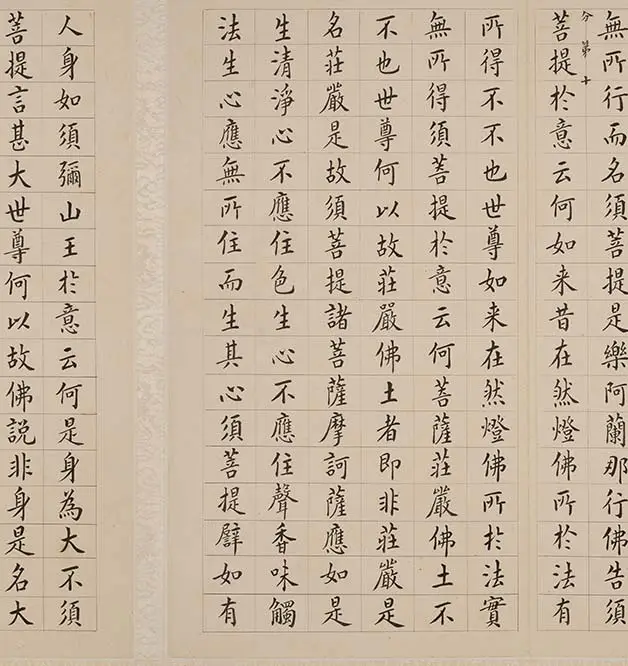 無所行而名須菩提是樂阿蘭那行佛告須
分第十
菩提於意云何如来昔在然燈佛所於法有
所得不不也世尊如来在然燈佛所於法實
無所得須菩提於意云何菩薩莊嚴佛土不
不也世尊何以故莊嚴佛土者即非莊嚴是
名莊嚴是故須菩提諸菩薩摩訶薩應如是
生清淨心不應住色生心不應住聲香味觸
法生心應無所住而生其心須菩提譬如有
人身如須彌山王於意云何是身為大不須
菩提言甚大世尊何以故佛說非身是名大